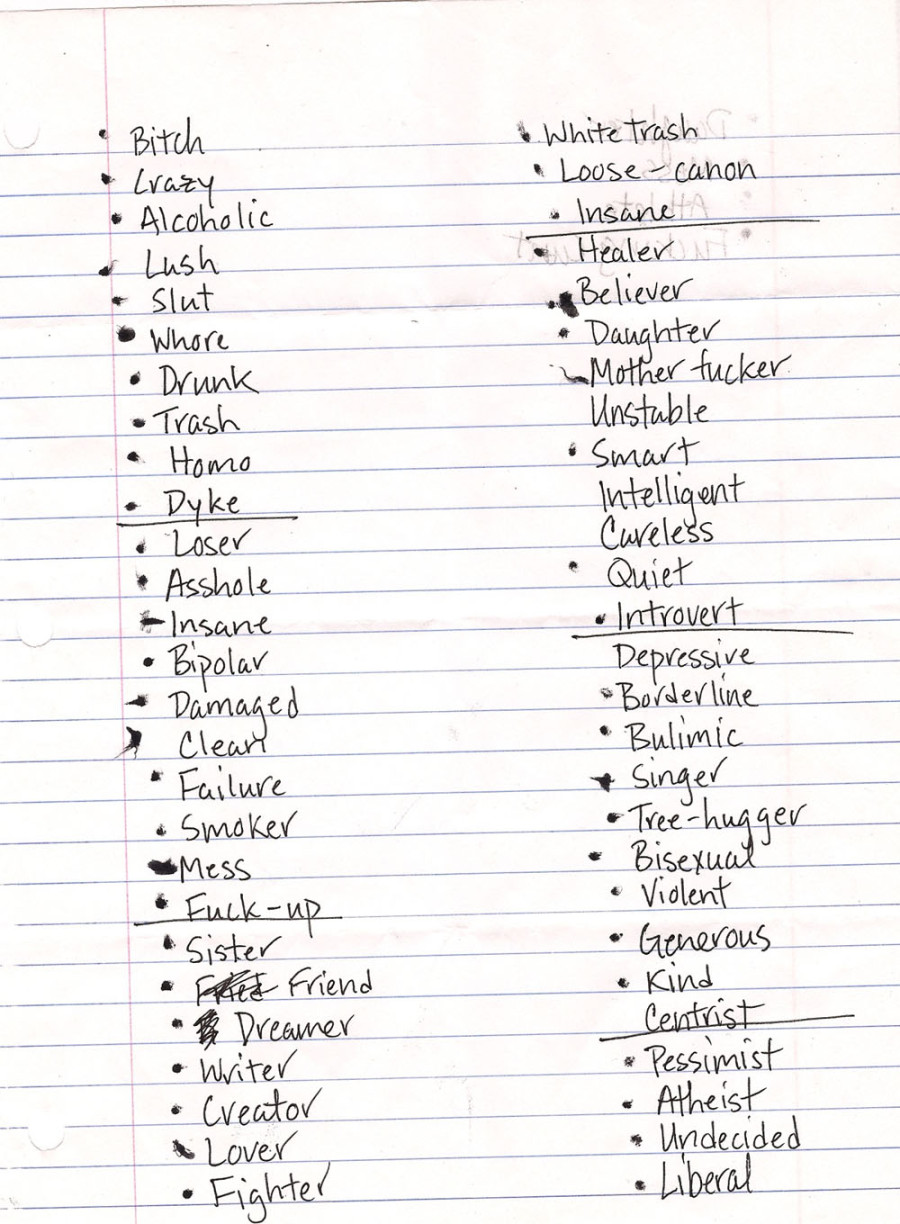 • Bitch
• Crazy
• Alcoholic
• Lush
• Slut
• Whore
• Drunk
• Trash
• Homo
• Dyke
• Loser
• Asshole
• Insane
• Bipolar
• Damaged
Clean
• Failure
• Smoker
• Mess
• Fuck-up
• Sister
• Friend
• Dreamer
• Writer
• Creator
• Lover
• Fighter
• White trash
• Loose-canon
• Insane
• Healer
• Believer
• Daughter
Mother fucker
Unstable
• Smart
Intelligent
Careless
• Quiet
• Introvert
Depressive
• Borderline
• Bulimic
• Singer
• Tree-hugger
• Bisexual
• Violent
• Generous
• Kind
Centrist
• Pessimist
• Atheist
• Undecided
• Liberal